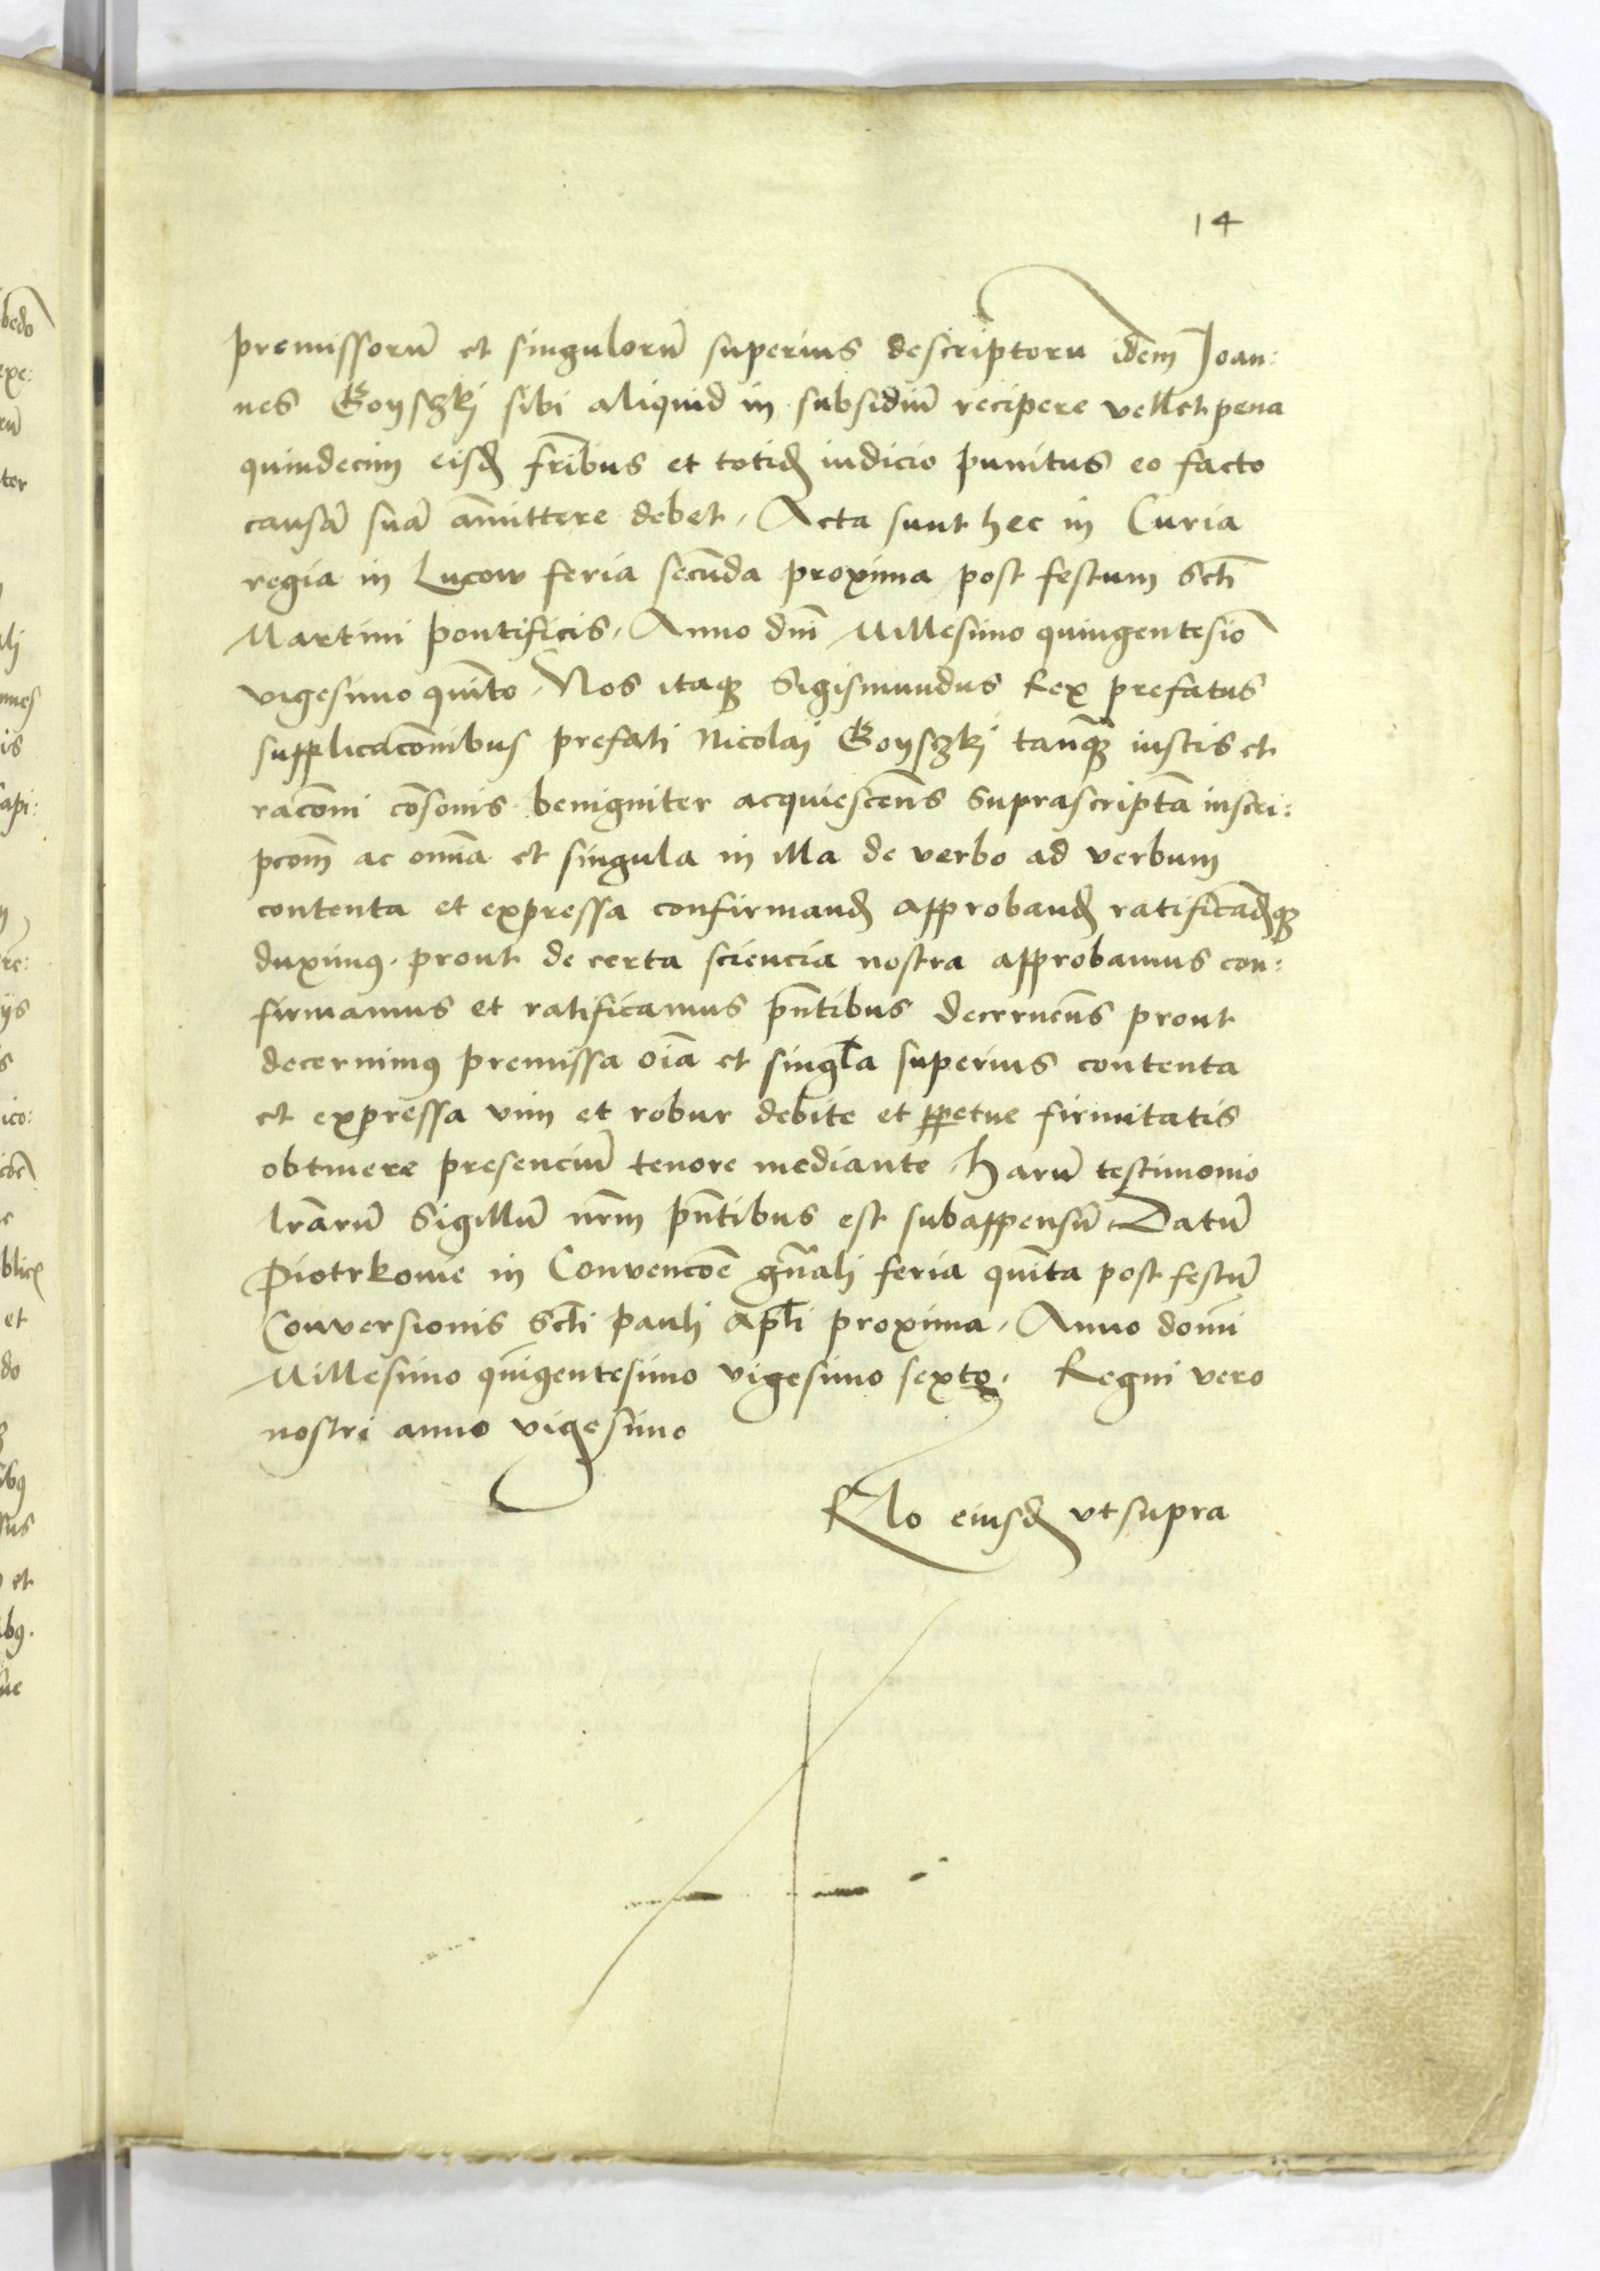 14
premissorū et singulorū superius descriptoru idem Joan:
nes Goyszkj sibi aliquid in subsidiū recipere vellet pena
quindecim eisd fr̄ibus et totid iudicio punitus eo facto
causā suā am̄ittere debet, Acta sunt hec in Curia
regia in Lucow feria secūda proxima post festum Sctī
Martini pontificis, Anno dnī Millesimo quingentesio
vigesimo quīto, Nos itaq Sigismundus Rex prefatus
supplicacōnibus prefati Nicolaj Goyszkj tanq̄ iustis et
racōni cōsonis benigniter acquiescens Suprascriptā inscri:
pcom̄ ac omīa et singula in illa de verbo ad verbum
contenta et expressa confirmand approband ratificādq
duximus. prout de certa sciencia nostra approbamus con:
firmamus et ratificamus pn̄tibus decernens prout
decernimus premissa oīa et singl̄a superius contenta
et expressa vim et robur debite et ppetue firmitatis
obtinere presenciū tenore mediante, harū testimonio
lr̄arū Sigillū nr̄m pn̄tibus est subappensū Datū
Piotrkowie in Convencōe gn̄ali feria quīta post festū
Conversionis Sctī pauli apl̄i proxima, Anno domī
Millesimo quīgentesimo vigesimo sexto, Regni vero
nostri anno vigesimo
Rlo eiusd vt supra